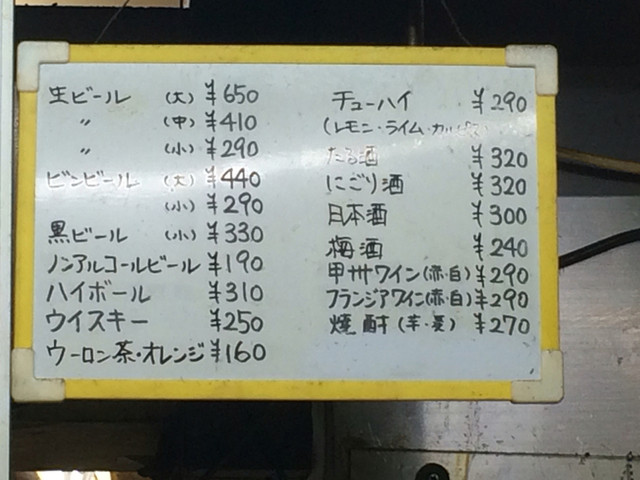 生ビール (大) ¥650
〃 (中) ¥410
〃 (小) ¥290
ビンビール (大) ¥440
(小) ¥290
黒ビール (小) ¥330
ノンアルコールビール ¥190
ハイボール ¥310
ウイスキー ¥250
ウーロン茶・オレンジ ¥160
チューハイ ¥290
(レモン・ライム・カルピス)
たる酒 ¥320
にごり酒 ¥320
日本酒 ¥300
梅酒 ¥240
甲州ワイン(赤・白) ¥290
フランジアワイン(赤・白) ¥290
焼酎 (芋・麦) ¥270